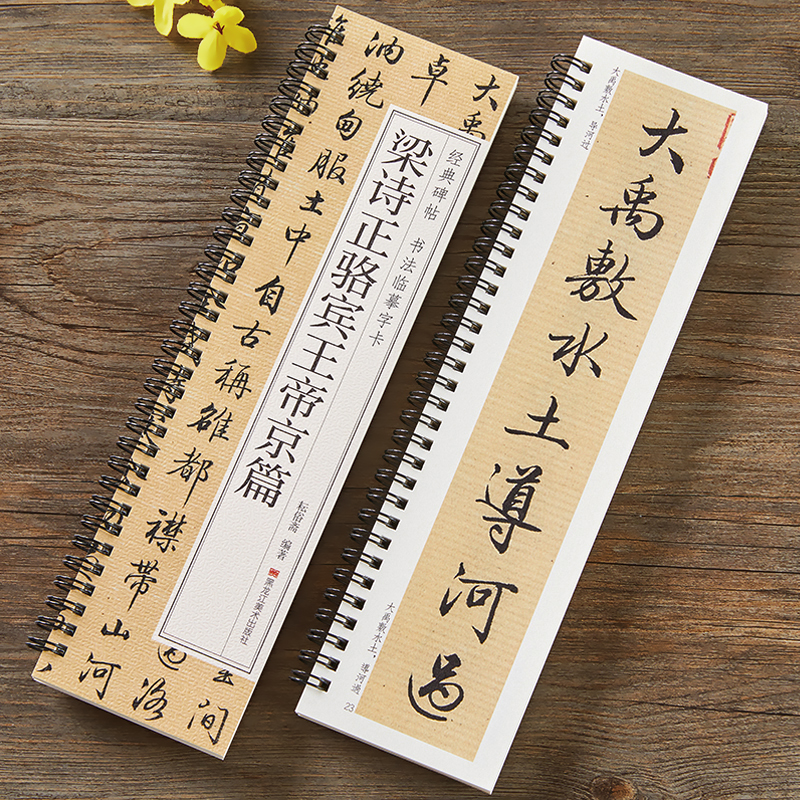 大禹
卓
油绕甸服土中自古稱雒都襟帶山河
過洛
間
经典碑帖 书法临摹字卡
梁诗正骆宾王帝京篇
耘俗斋 编著
黑龙江美术出版社
大禹敷水土，导河过
大禹敷水土導河過
大禹敷水土，導河過
23